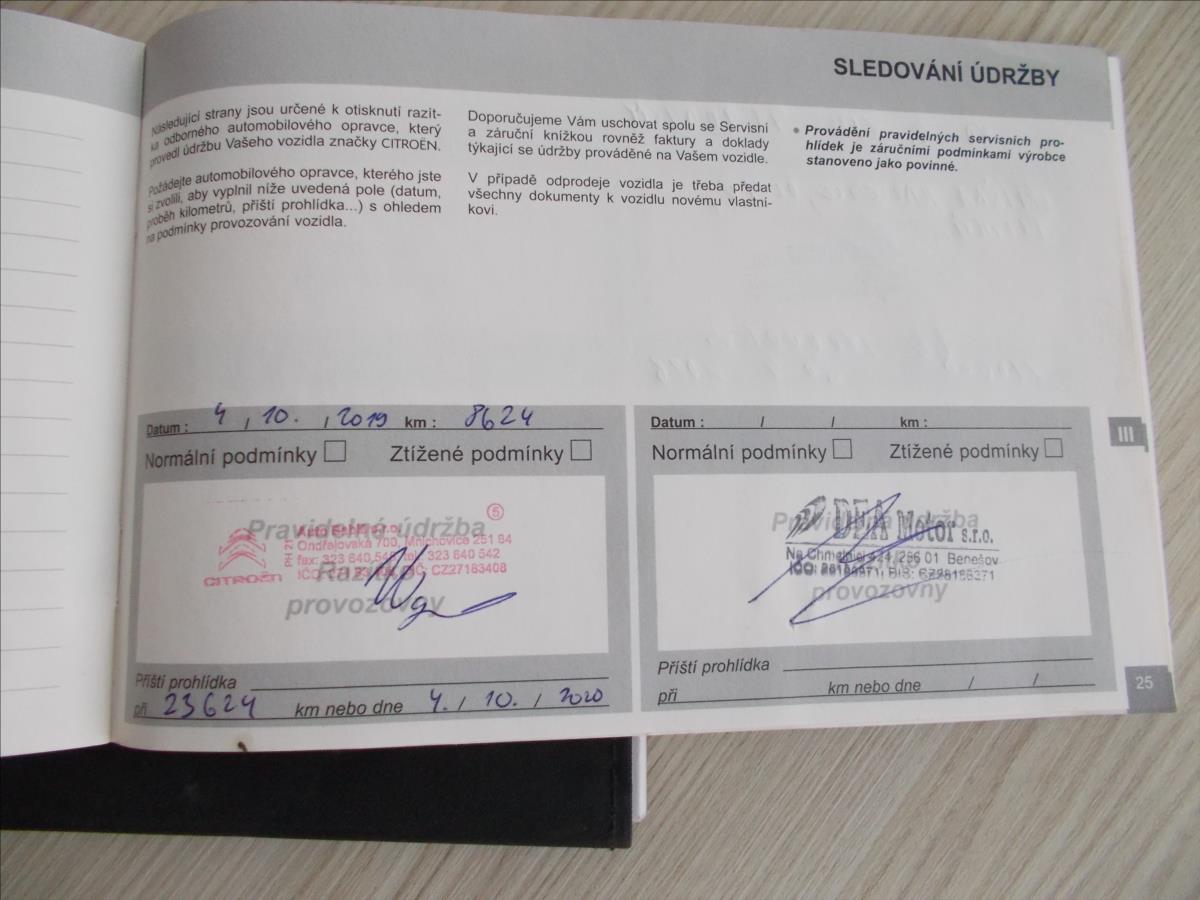 SLEDOVÁNÍ ÚDRŽBY
Následující strany jsou určené k otisknutí razít-
ka odborného automobilového opravce, který
provedl údržbu Vašeho vozidla značky CITROËN.
Požádejte automobilového opravce, kterého jste
si zvolili, aby vyplnil níže uvedená pole (datum,
proběh kilometrů, příští prohlídka...) s ohledem
na podmínky provozování vozidla.
Doporučujeme Vám uschovat spolu se Servisní
a záruční knížkou rovněž faktury a doklady
týkající se údržby prováděné na Vašem vozidle.
V případě odprodeje vozidla je třeba předat
všechny dokumenty k vozidlu novému vlastní-
kovi.
• Provádění pravidelných servisních pro-
hlídek je záručními podmínkami výrobce
stanoveno jako povinné.
Datum : 4 / 10. / 2019 km : 8624
Normální podmínky Ztížené podmínky
Pravidelná údržba
Razítko
provozovny
5
CITROËN
PH 21
Auto s.r.o.
Ondřejovská 700, Mnichovice 251 64
fax: 323 640 tel. 323 640 542
DIČ: CZ27183408
Příští prohlídka
při 23624 km nebo dne 4. / 10. / 2020
Datum : / / km :
Normální podmínky Ztížené podmínky
Pravidelná údržba
provozovny
DEA Motor s.r.o.
Na Chmelnici 256 01 Benešov
IČO: DIČ:
Příští prohlídka
při km nebo dne / /
III
25